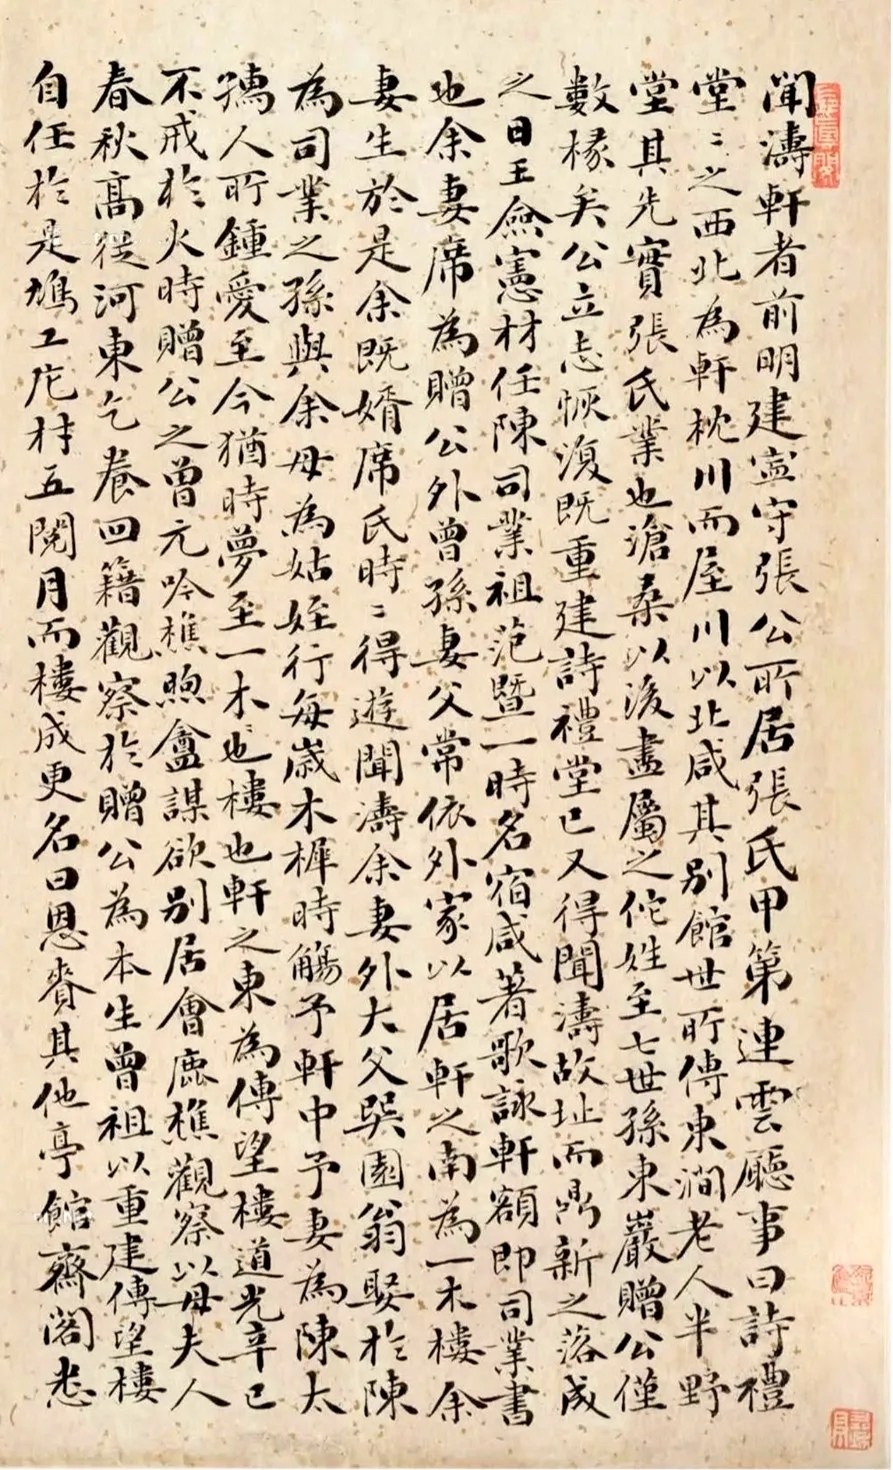 聞濤軒者前明建寧守張公所居張氏甲第連雲廳事曰詩禮
堂〻之西北為軒枕川而屋川以北咸其別館世所傳東澗老人半野
堂其先實張氏業也滄桑以後盡屬之佗姓至七世孫東巖贈公僅
數椽矣公立志恢復既重建詩禮堂已又得聞濤故址而鼎新之落成
之日王僉憲材任陳司業祖范暨一時名宿咸著歌詠軒額即司業書
也余妻席為贈公外曾孫妻父常依外家以居軒之南為一木樓余
妻生於是余既婿席氏時〻得遊聞濤余妻外大父吳園翁娶於陳
為司業之孫與余母為姑姪行每歲木樨時觴予軒中予妻為陳太
孺人所鍾愛至今猶時夢至一木也樓也軒之東為傳望樓道光辛巳
不戒於火時贈公之曾元吟樵煦盦謀欲別居會鹿樵觀察以母夫人
春秋高從河東乞養回籍觀察於贈公為本生曾祖以重建傳望樓
自任於是鳩工庀材五閱月而樓成更名曰恩賚其他亭館齋閣悉